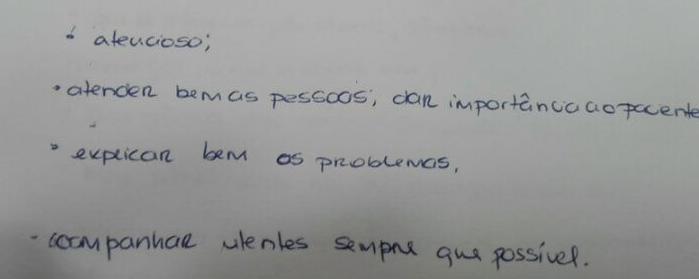 • atencioso;
• atender bem as pessoas; dar importância ao paciente
• explicar bem os problemas,
- acompanhar utentes sempre que possível.